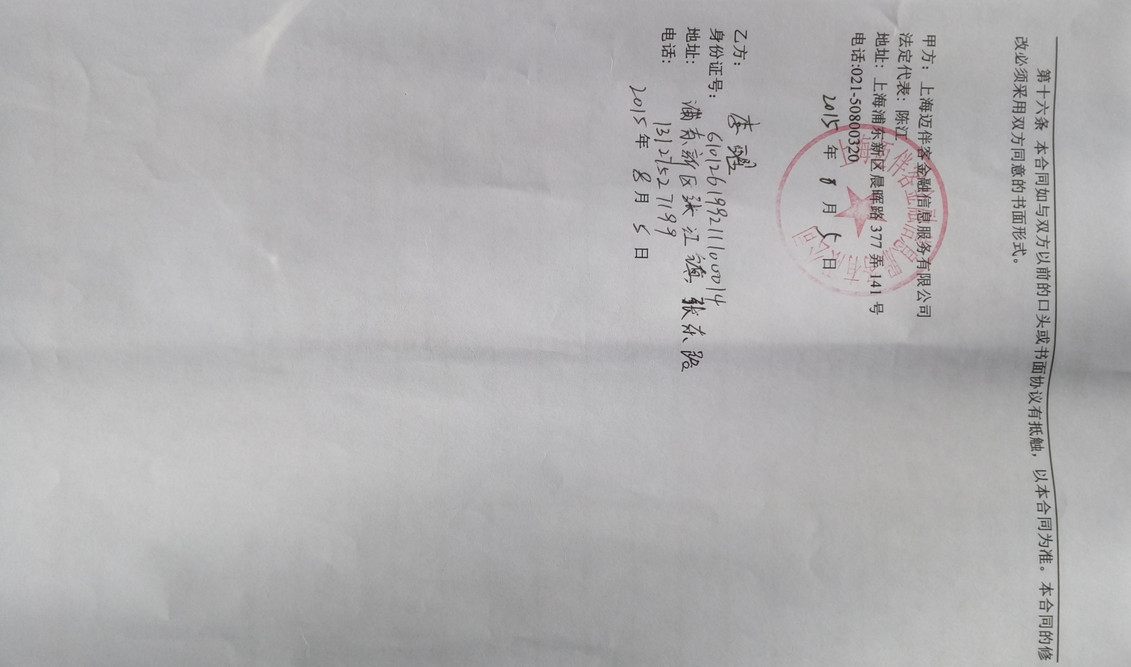 第十六条 本合同如与双方以前的口头或书面协议有抵触，以本合同为准。本合同的修
改必须采用双方同意的书面形式。
甲方：上海迈伴客金融信息服务有限公司
法定代表：陈江
地址：上海浦东新区晨晖路 377 弄 141 号
电话:021-50800320
2015 年 8 月 5 日
乙方：李
身份证号：610126199211100014
地址：浦东新区张江镇张东路
电话：13127527199
2015 年 8 月 5 日